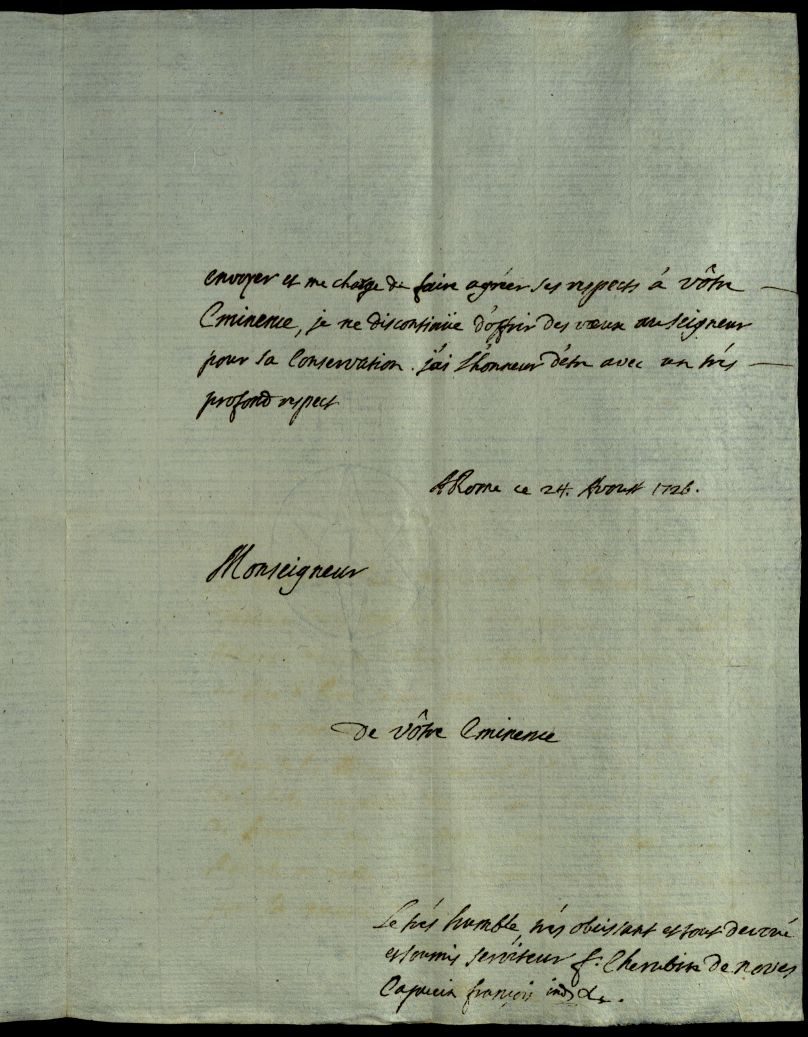 envoyer et me charge de faire agréer ses respects à vôtre
Eminence, je ne discontinüe d'offrir des vœux au seigneur
pour sa Conservation. j'ai l'honneur d'etre avec un trés
profond respect
A Rome ce 24. Aoust 1726.
Monseigneur
De vôtre Eminence
Le trés humble, trés obeissant et tout devoué
et soumis serviteur f. Cherubin de noves
Capucin françois